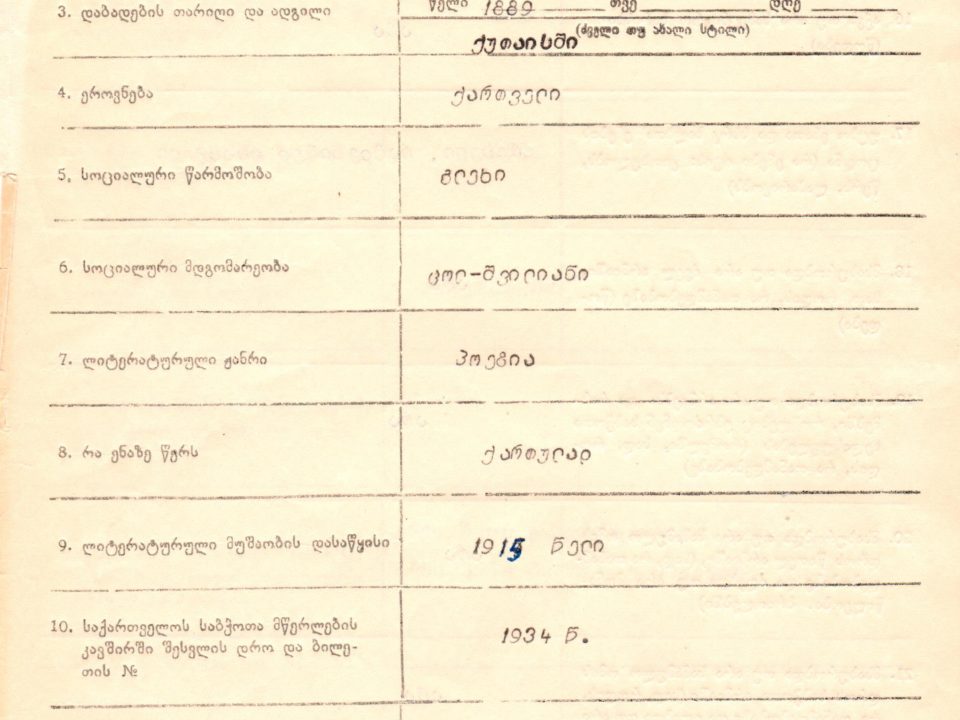 3. დაბადების თარიღი და ადგილი
წელი 1889 თვე დღე
(ძველი თუ ახალი სტილი)
ქუთაისში
4. ეროვნება
ქართველი
5. სოციალური წარმოშობა
გლეხი
6. სოციალური მდგომარეობა
ცოლ-შვილიანი
7. ლიტერატურული ჟანრი
პოეზია
8. რა ენაზე წერს
ქართულად
9. ლიტერატურული მუშაობის დასაწყისი
1915 წელი
10. საქართველოს საბჭოთა მწერლების
კავშირში შესვლის დრო და ბილე-
თის №
1934 წ.